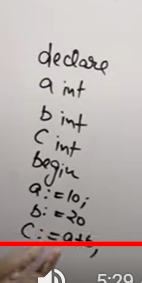 declare
a int
b int
C int
begin
a:=10;
b:=20
C:=a+b;
5:29